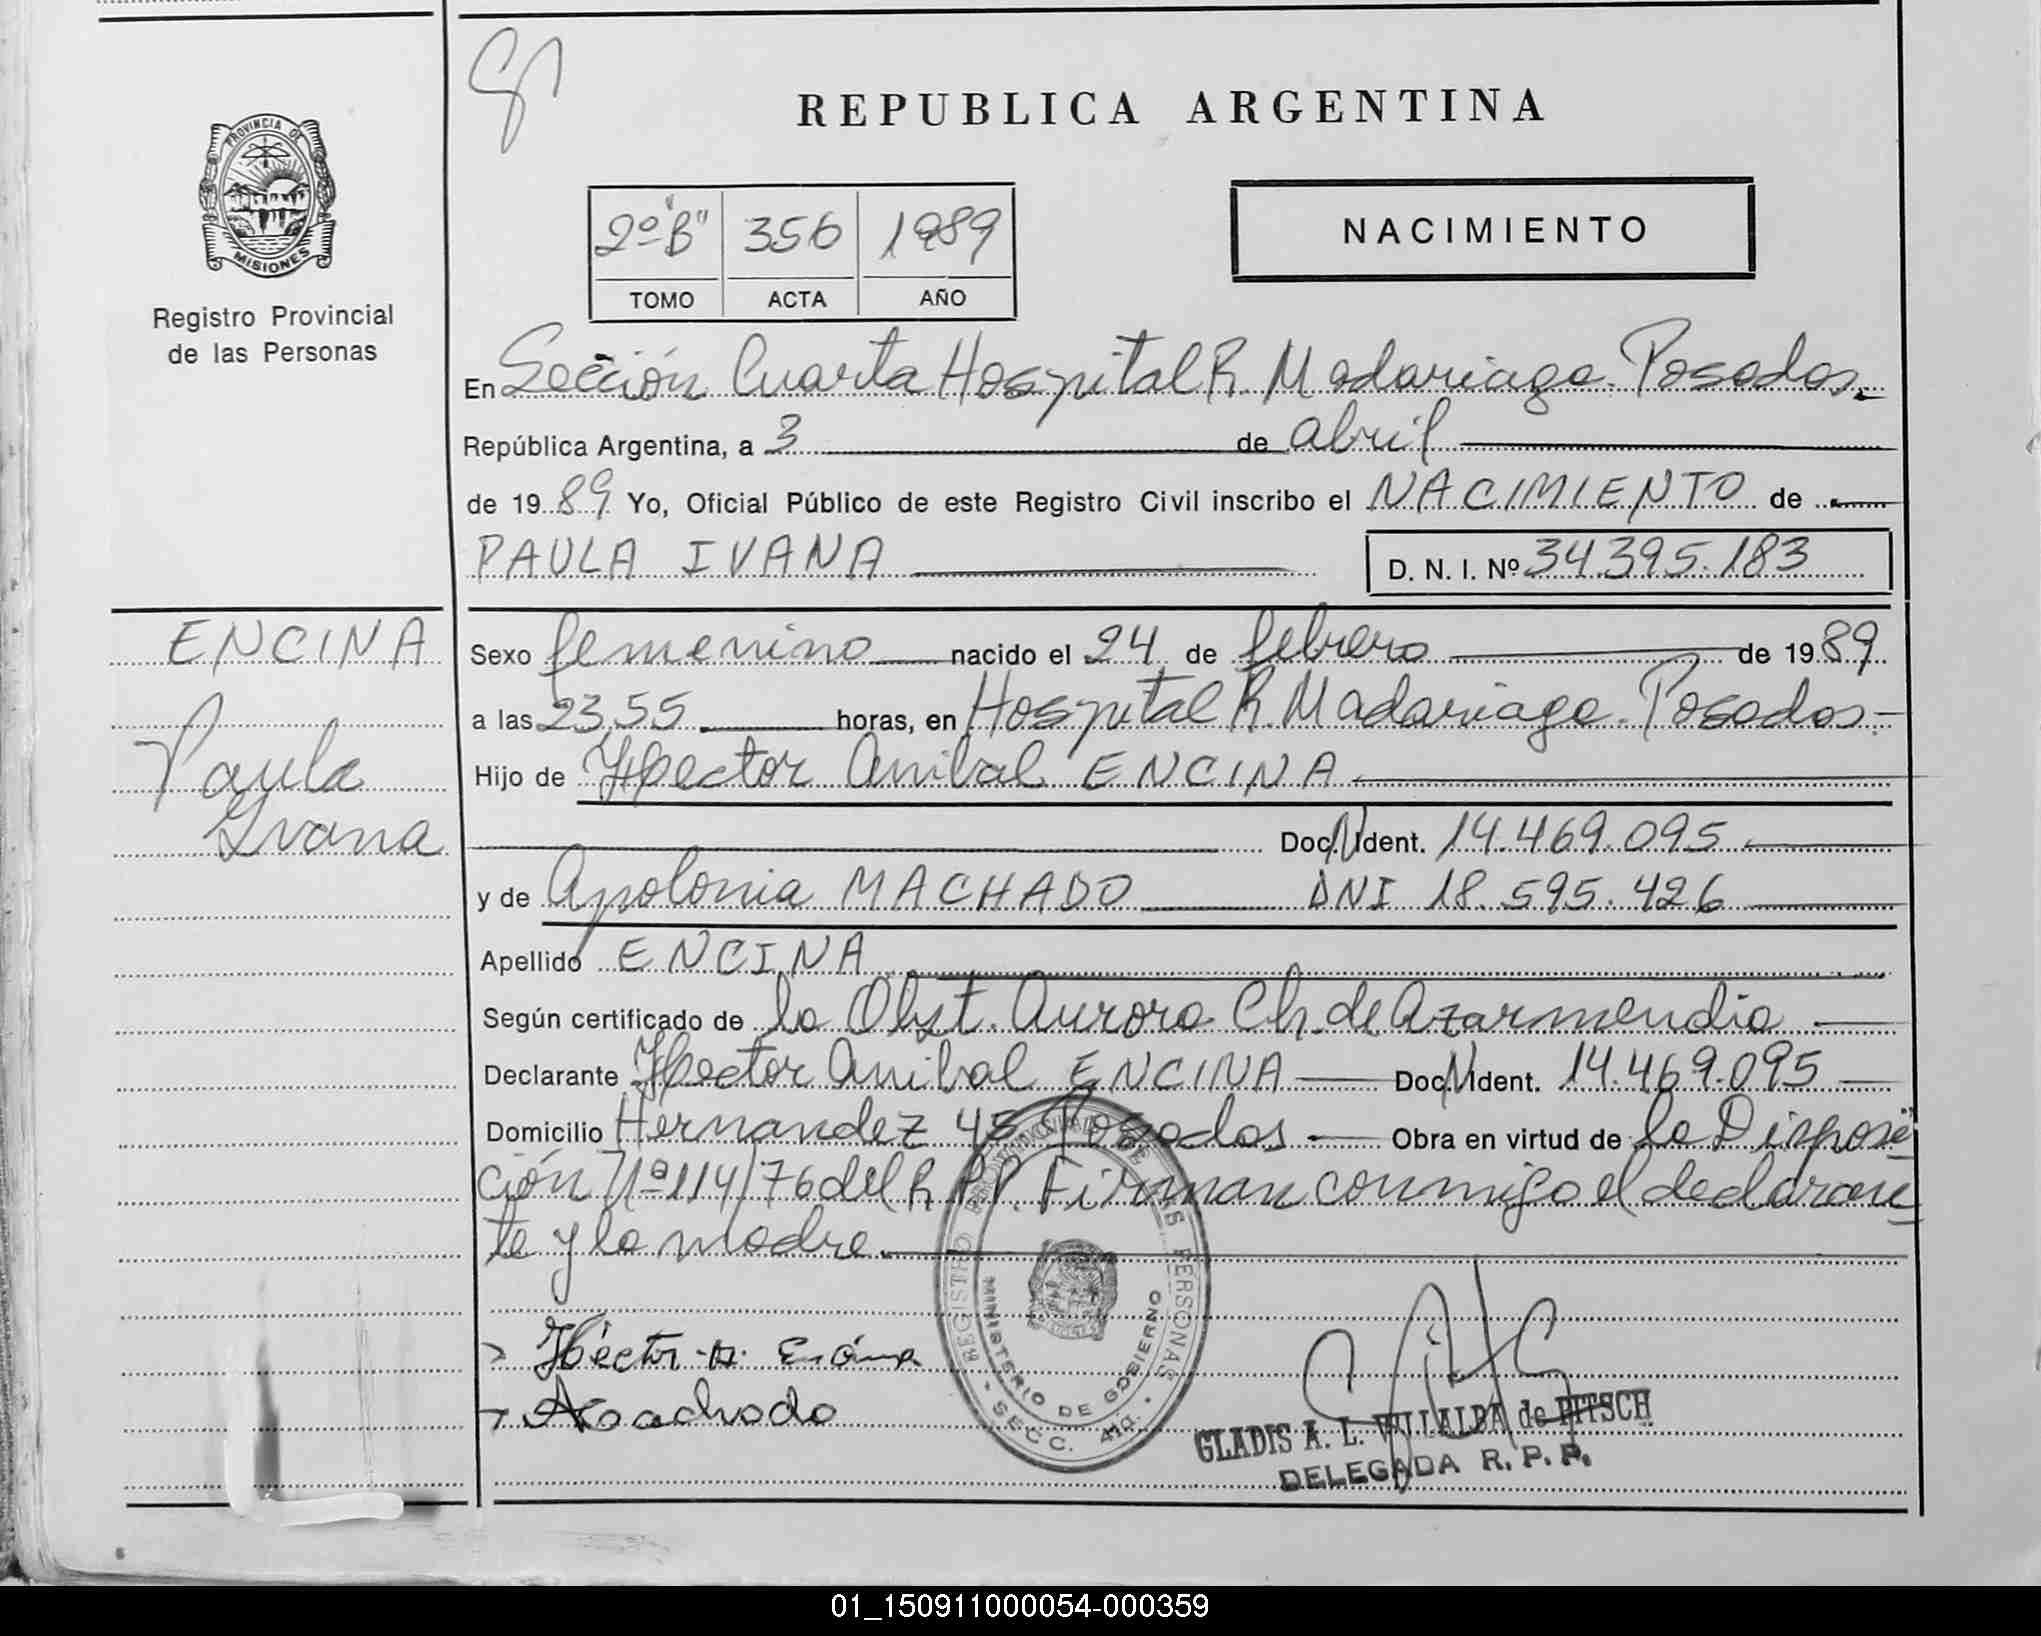 REPUBLICA ARGENTINA
PROVINCIA DE
MISIONES
Registro Provincial
de las Personas
2º "B" 356 1989
TOMO ACTA AÑO
NACIMIENTO
En Sección Cuarta Hospital R. Madariaga. Posadas.
República Argentina, a 3 de abril
de 1989 Yo, Oficial Público de este Registro Civil inscribo el NACIMIENTO de
PAULA IVANA D. N. I. Nº 34.395.183
ENCINA
Paula
Ivana
Sexo femenino nacido el 24 de febrero de 1989
a las 23,55 horas, en Hospital R. Madariaga. Posadas
Hijo de Hector Anibal ENCINA
Doc. N Ident. 14.469.095
y de Apolonia MACHADO DNI 18.595.426
Apellido ENCINA
Según certificado de la Obst. Aurora Ch. de Azarmendia
Declarante Hector Anibal ENCINA Doc. N Ident. 14.469.095
Domicilio Hernandez 45 Posadas Obra en virtud de la Disposi
ción Nº 114/76 del R.P.P. Firman conmigo el declaran
te y la madre.
Héctor A. Encina
Machado
REGISTRO PROVINCIAL DE LAS PERSONAS
MINISTERIO DE GOBIERNO
SECC. 4ta.
GLADIS A. L. VILLALBA de PITSCH
DELEGADA R. P. P.
01_150911000054-000359